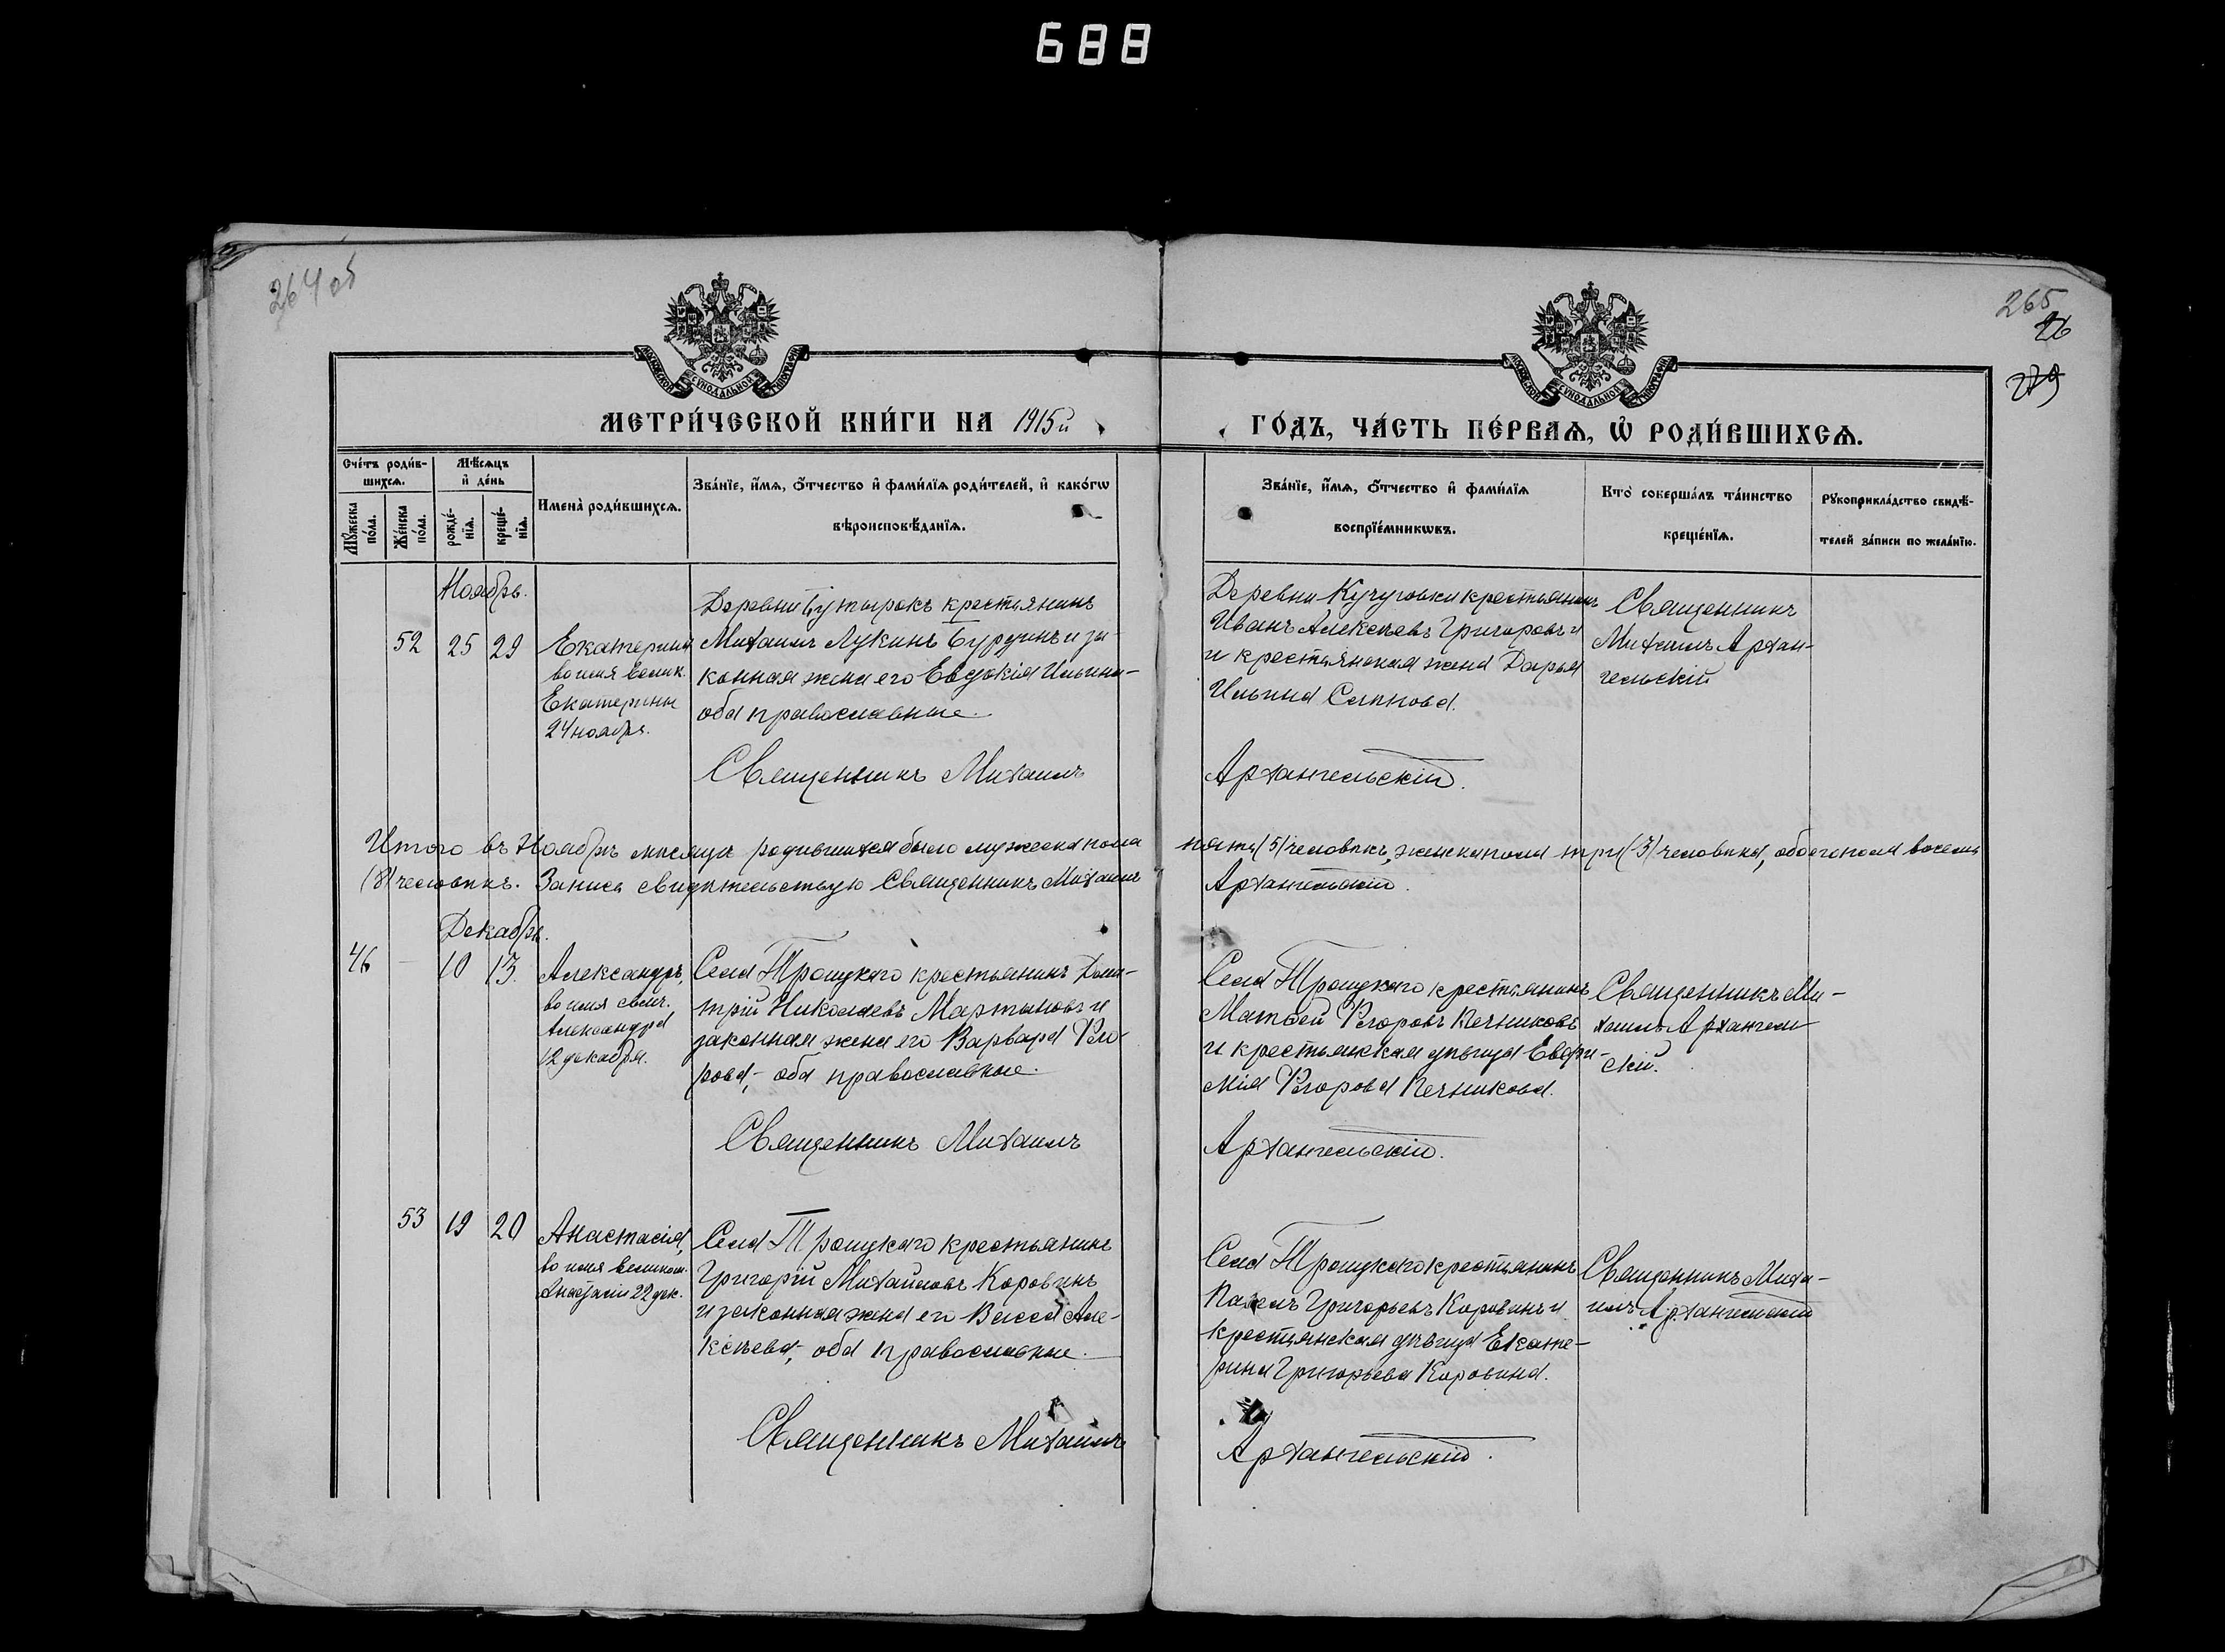 688
264 об
265
26
279
МОСКОВСКОЙ СѴНОДАЛЬНОЙ ТИПОГРАФІИ
МОСКОВСКОЙ СѴНОДАЛЬНОЙ ТИПОГРАФІИ
МЕТРИ́ЧЕСКОЙ КНИ́ГИ НА 1915й
ГО́ДЪ, ЧА́СТЬ ПЕ́РВАѦ, Ѡ҆ РОДИ́ВШИХСѦ.
Сче́тъ роди́в-
шихсѧ.
Мꙋ́жеска
по́ла.
Же́нска
по́ла.
Мѣ́сѧцъ
и҆ де́нь
рожде́-
нїѧ.
креще́-
нїѧ.
Имена̀ роди́вшихсѧ.
Зва́нїе, и҆́мѧ, ѻ҆́тчество и҆ фами́лїѧ роди́телей, и҆ како́гѡ
вѣроисповѣ́данїѧ.
Зва́нїе, и҆́мѧ, ѻ҆́тчество и҆ фами́лїѧ
воспрїе́мникѡвъ.
Кто̀ соверша́лъ та́инство
креще́нїѧ.
Рꙋкоприкла́дство свидѣ́-
телей за́писи по жела́нїю.
Ноябрь.
52 25 29
Екатерина
во имя велик.
Екатерины
24 ноября.
Деревни Бутырокъ крестьянинъ
Михаилъ Лукинъ Бурдинъ и за-
конная жена его Евдокія Ильина-
оба православные.
Деревни Кучуговки крестьянинъ
Иванъ Алексѣевъ Григоровъ и
и крестьянская жена Дарья
Ильина Сыпнова.
Священникъ
Михаилъ Архан-
гельскій
Священникъ Михаилъ
Архангельскій.
Итого въ Ноябрѣ мѣсяцѣ родившихся было мужеска пола пять (5) человѣкъ, женска пола три (3) человѣка, обоего пола восемь
(8) человѣкъ. Запись свидѣтельствую Священникъ Михаилъ Архангельскій.
Декабрь.
46 – 10 13.
Александръ,
во имя свмч.
Александра
12 декабря.
Села Троицкаго крестьянинъ Дми-
трій Николаевъ Мартыновъ и
законная жена его Варвара Его-
рова,- оба православные.
Села Троицкаго крестьянинъ
Матвей Егоровъ Печниковъ
и крестьянская дѣвица Евфи-
мія Егорова Печникова.
Священникъ Ми-
хаилъ Архангель-
скій.
Священникъ Михаилъ
Архангельскій.
53 19 20
Анастасія,
во имя великом.
Анастасіи 22 дек.
Села Троицкаго крестьянинъ
Григорій Михайловъ Коровинъ
и законная жена его Васса Але-
ксѣева, оба православные.
Села Троицкаго крестьянинъ
Павелъ Григорьевъ Коровинъ и
крестьянская дѣвица Екате-
рина Григорьева Коровина.
Священникъ Миха-
илъ Архангельскій
Священникъ Михаилъ
Архангельскій.